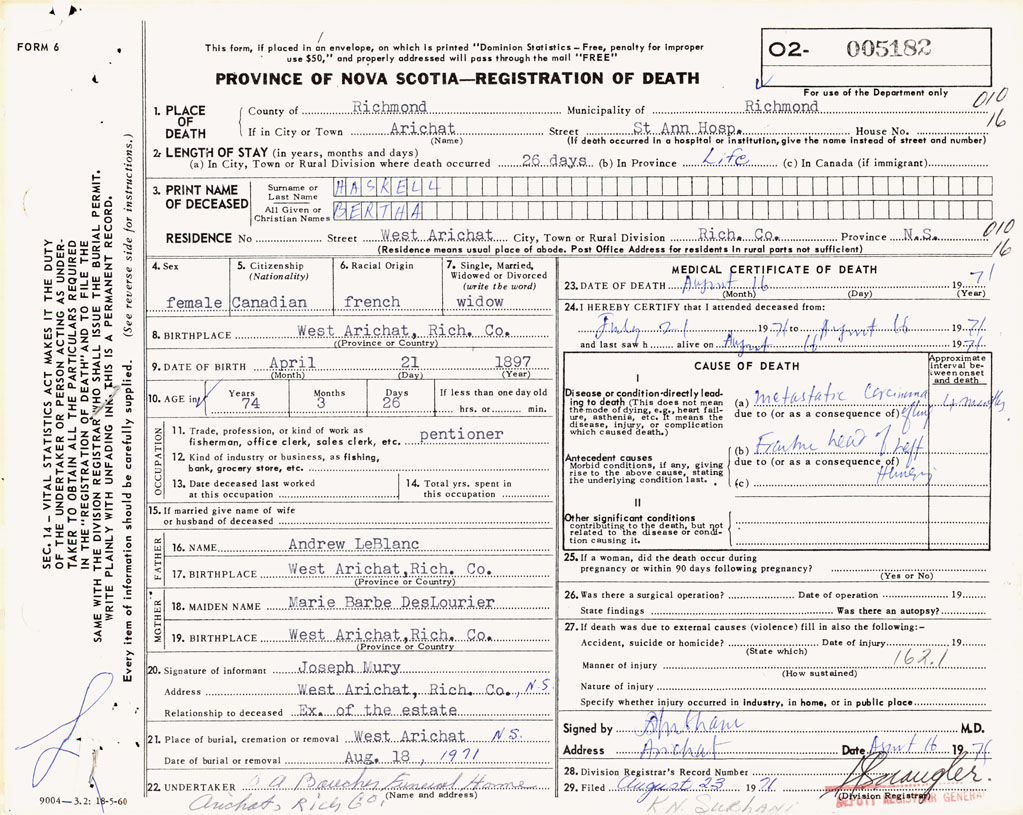 FORM 6
This form, if placed in an envelope, on which is printed "Dominion Statistics – Free, penalty for improper
use $50," and properly addressed will pass through the mail "FREE"
PROVINCE OF NOVA SCOTIA—REGISTRATION OF DEATH
02- 005182
For use of the Department only
010
16
1. PLACE OF DEATH
County of Richmond Municipality of Richmond
If in City or Town Arichat Street St Ann Hosp. House No.
(Name) (If death occurred in a hospital or institution, give the name instead of street and number)
2. LENGTH OF STAY (in years, months and days)
(a) In City, Town or Rural Division where death occurred 26 days (b) In Province Life (c) In Canada (if immigrant)
3. PRINT NAME OF DECEASED
Surname or Last Name HASKELL
All Given or Christian Names BERTHA
RESIDENCE No Street West Arichat City, Town or Rural Division Rich. Co. Province N.S.
010
16
(Residence means usual place of abode. Post Office Address for residents in rural parts not sufficient)
4. Sex
female
5. Citizenship (Nationality)
Canadian
6. Racial Origin
french
7. Single, Married, Widowed or Divorced (write the word)
widow
8. BIRTHPLACE West Arichat, Rich. Co.
(Province or Country)
9. DATE OF BIRTH April 21 1897
(Month) (Day) (Year)
10. AGE in Years Months Days If less than one day old
74 3 26 hrs. or min.
OCCUPATION
11. Trade, profession, or kind of work as
fisherman, office clerk, sales clerk, etc. pentioner
12. Kind of industry or business, as fishing,
bank, grocery store, etc.
13. Date deceased last worked
at this occupation
14. Total yrs. spent in
this occupation
15. If married give name of wife
or husband of deceased
FATHER
16. NAME Andrew LeBlanc
17. BIRTHPLACE West Arichat, Rich. Co.
(Province or Country)
MOTHER
18. MAIDEN NAME Marie Barbe DesLourier
19. BIRTHPLACE West Arichat, Rich. Co.
(Province or Country
20. Signature of informant Joseph Mury
Address West Arichat, Rich. Co., N.S.
Relationship to deceased Ex. of the estate
21. Place of burial, cremation or removal West Arichat N.S.
Date of burial or removal Aug. 18, 1971
22. UNDERTAKER Funeral Home
(Name and address)
Arichat, Rich Co,
MEDICAL CERTIFICATE OF DEATH
23. DATE OF DEATH August 16 1971
(Month) (Day) (Year)
24. I HEREBY CERTIFY that I attended deceased from:
July 21 1971 to August 16 1971
and last saw h alive on August 16 1971
CAUSE OF DEATH
Approximate interval between onset and death
I
Disease or condition directly leading to death (This does not mean the mode of dying, e.g., heart failure, asthenia, etc. It means the disease, injury, or complication which caused death.)
(a) metastatic Carcinoma 4 months
due to (or as a consequence of)
Antecedent causes
Morbid conditions, if any, giving rise to the above cause, stating the underlying condition last.
(b) head of left
due to (or as a consequence of)
(c)
II
Other significant conditions
contributing to the death, but not related to the disease or condition causing it.
25. If a woman, did the death occur during
pregnancy or within 90 days following pregnancy?
(Yes or No)
26. Was there a surgical operation? Date of operation 19
State findings Was there an autopsy?
27. If death was due to external causes (violence) fill in also the following:–
Accident, suicide or homicide? Date of injury 19
(State which)
162.1
Manner of injury
(How sustained)
Nature of injury
Specify whether injury occurred in industry, in home, or in public place
Signed by M.D.
Address Arichat Date August 16 1971
28. Division Registrar's Record Number
29. Filed August 23 1971
(Division Registrar)
DEPUTY REGISTRAR GENERAL
K.N. SUKHANI
SEC. 14 – VITAL STATISTICS ACT MAKES IT THE DUTY
OF THE UNDERTAKER OR PERSON ACTING AS UNDER-
TAKER TO OBTAIN ALL THE PARTICULARS REQUIRED
IN THE "REGISTRATION OF DEATH" AND TO FILE THE
SAME WITH THE DIVISION REGISTRAR WHO SHALL ISSUE THE BURIAL PERMIT.
WRITE PLAINLY WITH UNFADING INK. THIS IS A PERMANENT RECORD.
Every item of information should be carefully supplied. (See reverse side for instructions.)
9004—3.2: 18-5-60